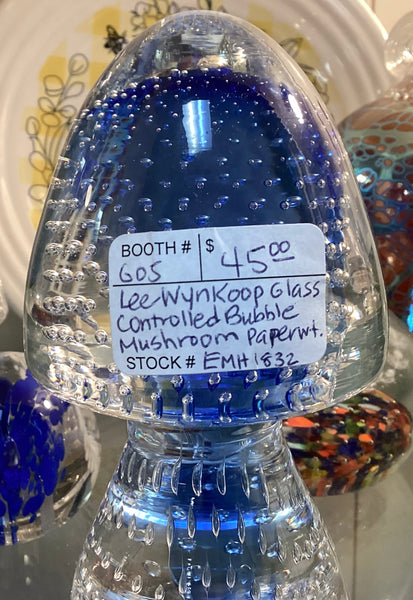 BOOTH # $
605 45.00
Lee Wynkoop Glass
Controlled Bubble
Mushroom Paperwt.
STOCK # EMH1832